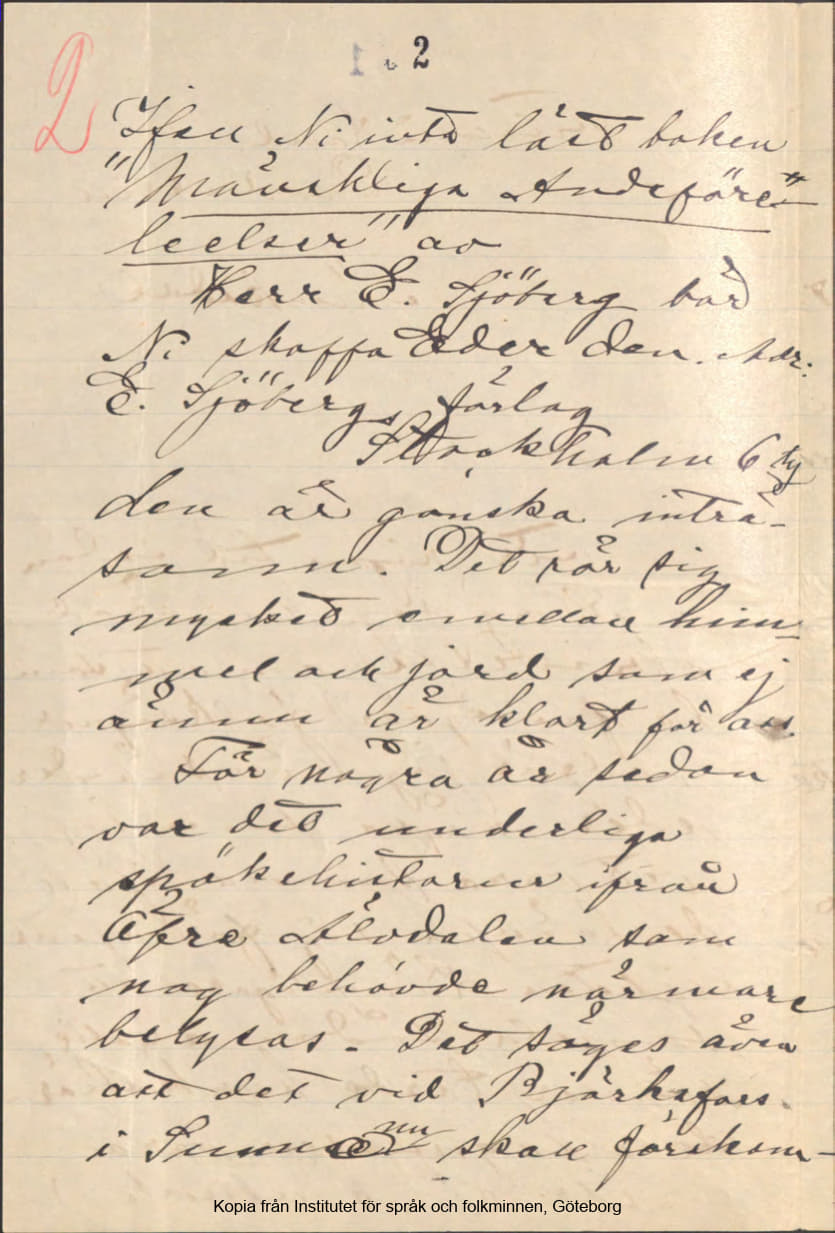 2
2
Ifall Ni inte läst boken
"Mänskliga Andeföre-
teelser" av
Herr E. Sjöberg bör
Ni skaffa Eder den. Adr:
E. Sjöbergs förlag
Stockholm 6 ty
den är ganska intre-
sann. Det rör sig
mycket emellan him-
mel och jord som ej
ännu är klart för oss.
För några år sedan
var det underliga
spökehistorier ifrån
Öfre Älvdalen som
nog behövde närmare
belysas. Det säges även
att det vid Björkefors
i Sunne nu skall förekom-
Kopia från Institutet för språk och folkminnen, Göteborg